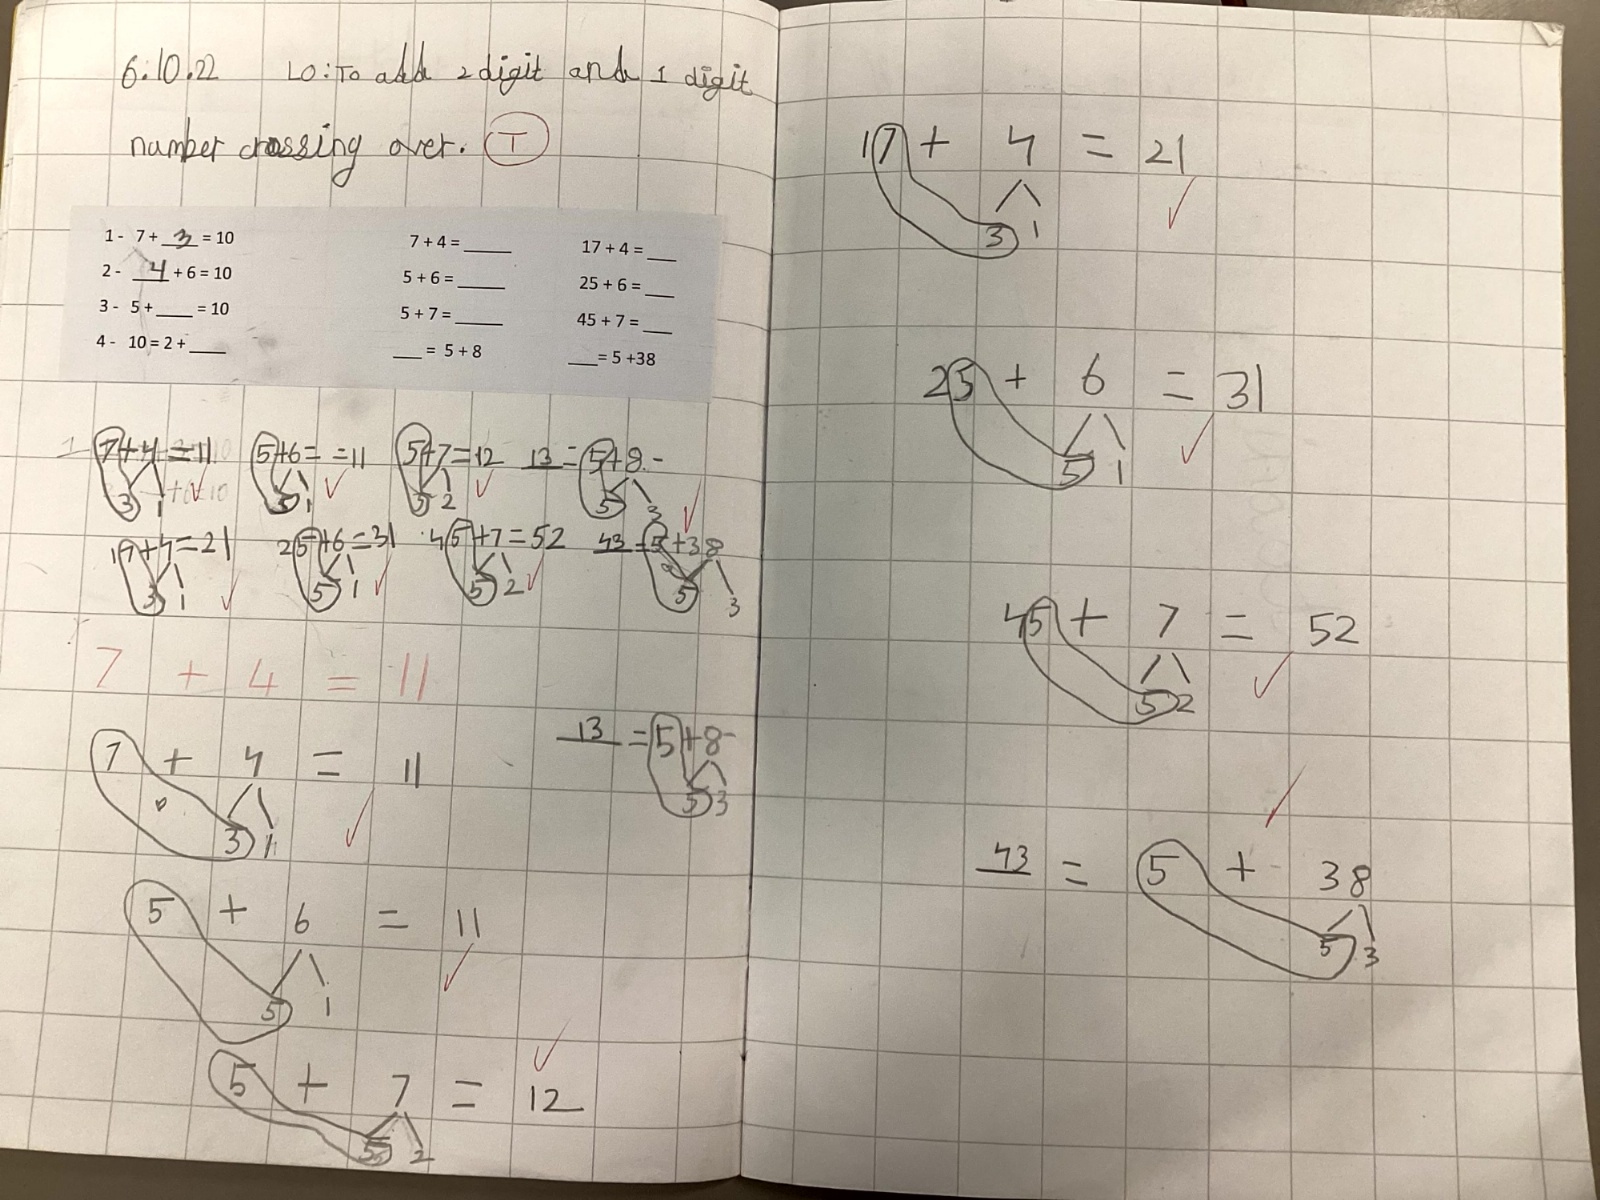 6.10.22 LO: To add 2 digit and 1 digit
number crossing over. T
1- 7 + 3 = 10
2- 4 + 6 = 10
3- 5 + ____ = 10
4- 10 = 2 + ____
7 + 4 = _____
5 + 6 = _____
5 + 7 = _____
___ = 5 + 8
17 + 4 = ___
25 + 6 = ___
45 + 7 = ___
___ = 5 +38
1 7+4=11 5+6= =11 5+7=12 13=5+8-
3 1 5 1 5 2 5 3
17+4=21 25+6=31 45+7=52 43=5+38
3 1 5 1 5 2 5 3
7 + 4 = 11
7 + 4 = 11
3 1
13 = 5+8-
5 3
5 + 6 = 11
5 1
5 + 7 = 12
5 2
17 + 4 = 21
3 1
25 + 6 = 31
5 1
45 + 7 = 52
5 2
43 = 5 + 38
5 3